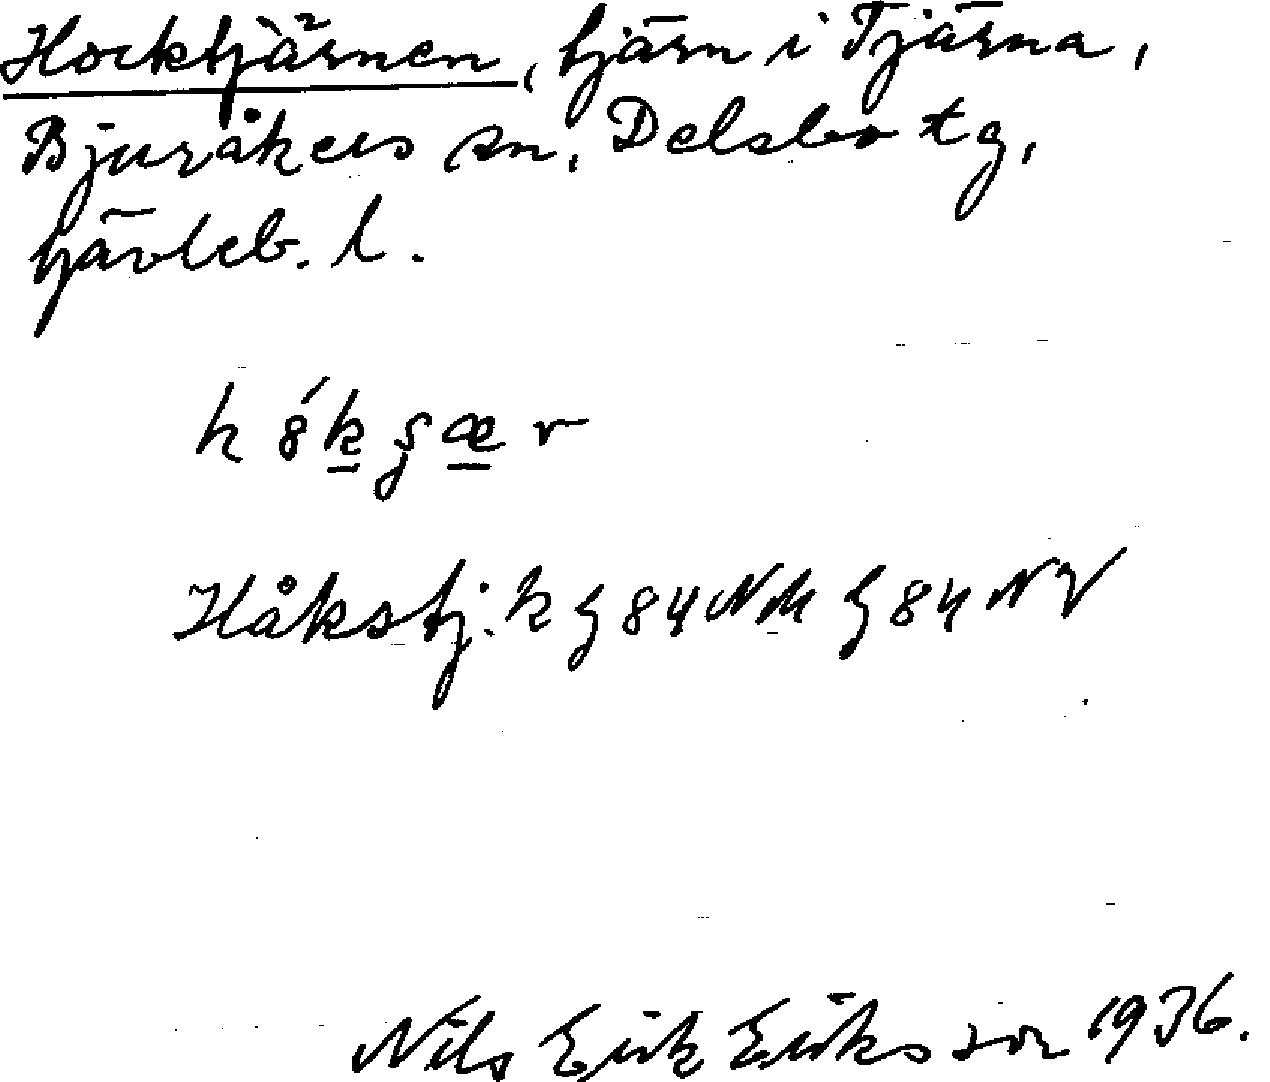 Hocktjärnen, tjärn i Tjärna,
Bjuråkers sn, Delsbo tg,
Gävleb. l.
Håkstj. k g 84 NM G 84 NV
Nils Erik Eriksson 1936.